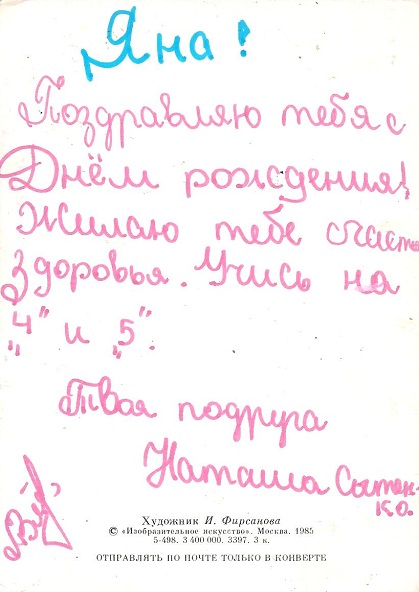 Яна!
Поздравляю тебя с
Днём рождения!
Жилаю тебе счастья
здоровья. Учись на
„4" и „5".
Твоя подруга
Наташа Сытен-
ко.
Художник И. Фирсанова
© «Изобразительное искусство». Москва. 1985
5-498. 3 400 000. 3397. 3 к.
ОТПРАВЛЯТЬ ПО ПОЧТЕ ТОЛЬКО В КОНВЕРТЕ